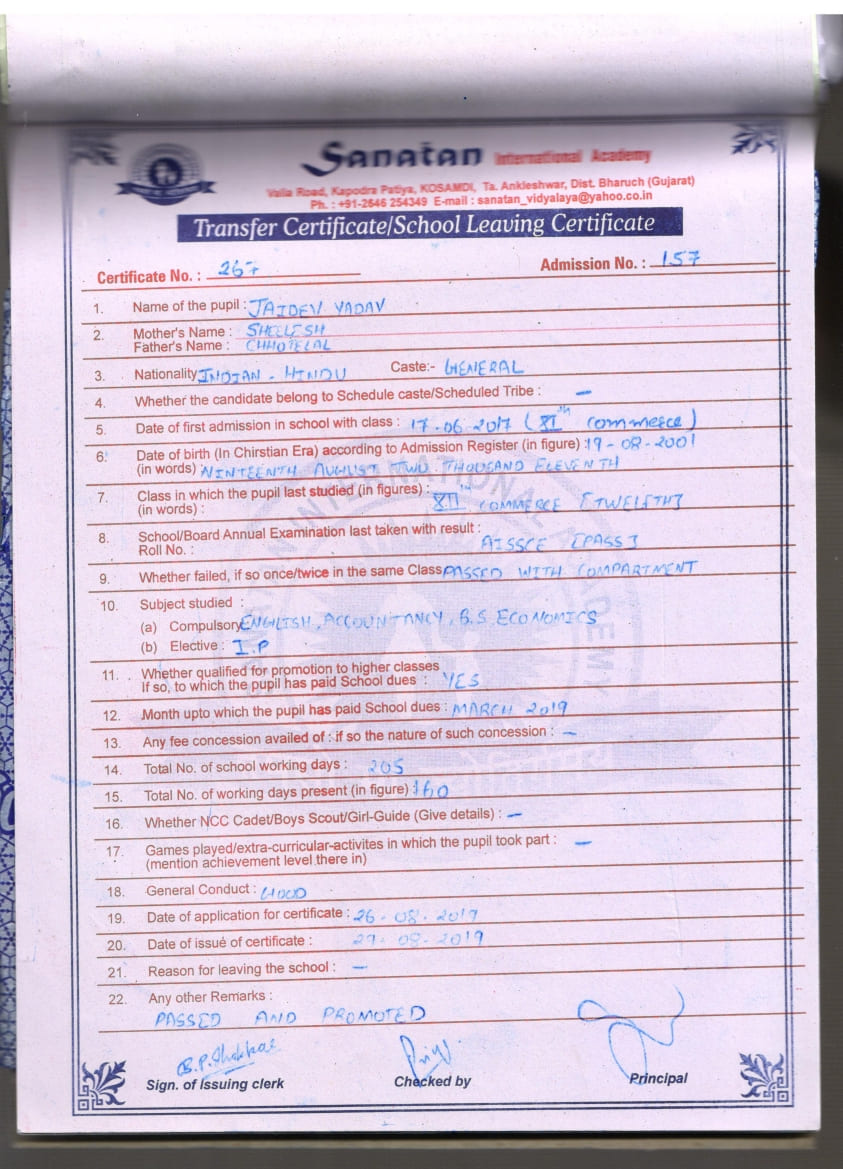 Sanatan International Academy
Valia Road, Kapodra Patiya, KOSAMDI, Ta. Ankleshwar, Dist. Bharuch (Gujarat)
Ph. : +91-2646 254349 E-mail : sanatan_vidyalaya@yahoo.co.in
Transfer Certificate/School Leaving Certificate
Certificate No. : 267 Admission No. : 157
1. Name of the pupil : JAIDEV YADAV
2. Mother's Name : SHEELESH
Father's Name : CHHOTELAL
3. Nationality INDIAN - HINDU Caste:- GENERAL
4. Whether the candidate belong to Schedule caste/Scheduled Tribe : –
5. Date of first admission in school with class : 17-06-2017 (XIth commerce)
6. Date of birth (In Chirstian Era) according to Admission Register (in figure) :19-08-2001
(in words) NINTEENTH AUGUST TWO THOUSAND ELEVENTH
7. Class in which the pupil last studied (in figures) :
(in words) : XIIth COMMERCE [TWELFTH]
8. School/Board Annual Examination last taken with result :
Roll No. : AISSCE [PASS]
9. Whether failed, if so once/twice in the same Class PASSED WITH COMPARTMENT
10. Subject studied :
(a) Compulsory ENGLISH, ACCOUNTANCY, B.S, ECONOMICS
(b) Elective : I.P
11. Whether qualified for promotion to higher classes
If so, to which the pupil has paid School dues : YES
12. Month upto which the pupil has paid School dues : MARCH 2019
13. Any fee concession availed of : if so the nature of such concession : –
14. Total No. of school working days : 205
15. Total No. of working days present (in figure) 160
16. Whether NCC Cadet/Boys Scout/Girl-Guide (Give details) : –
17. Games played/extra-curricular-activites in which the pupil took part : –
(mention achievement level there in)
18. General Conduct : GOOD
19. Date of application for certificate : 26-08-2019
20. Date of issue of certificate : 29-08-2019
21. Reason for leaving the school : –
22. Any other Remarks :
PASSED AND PROMOTED
Sign. of Issuing clerk Checked by Principal